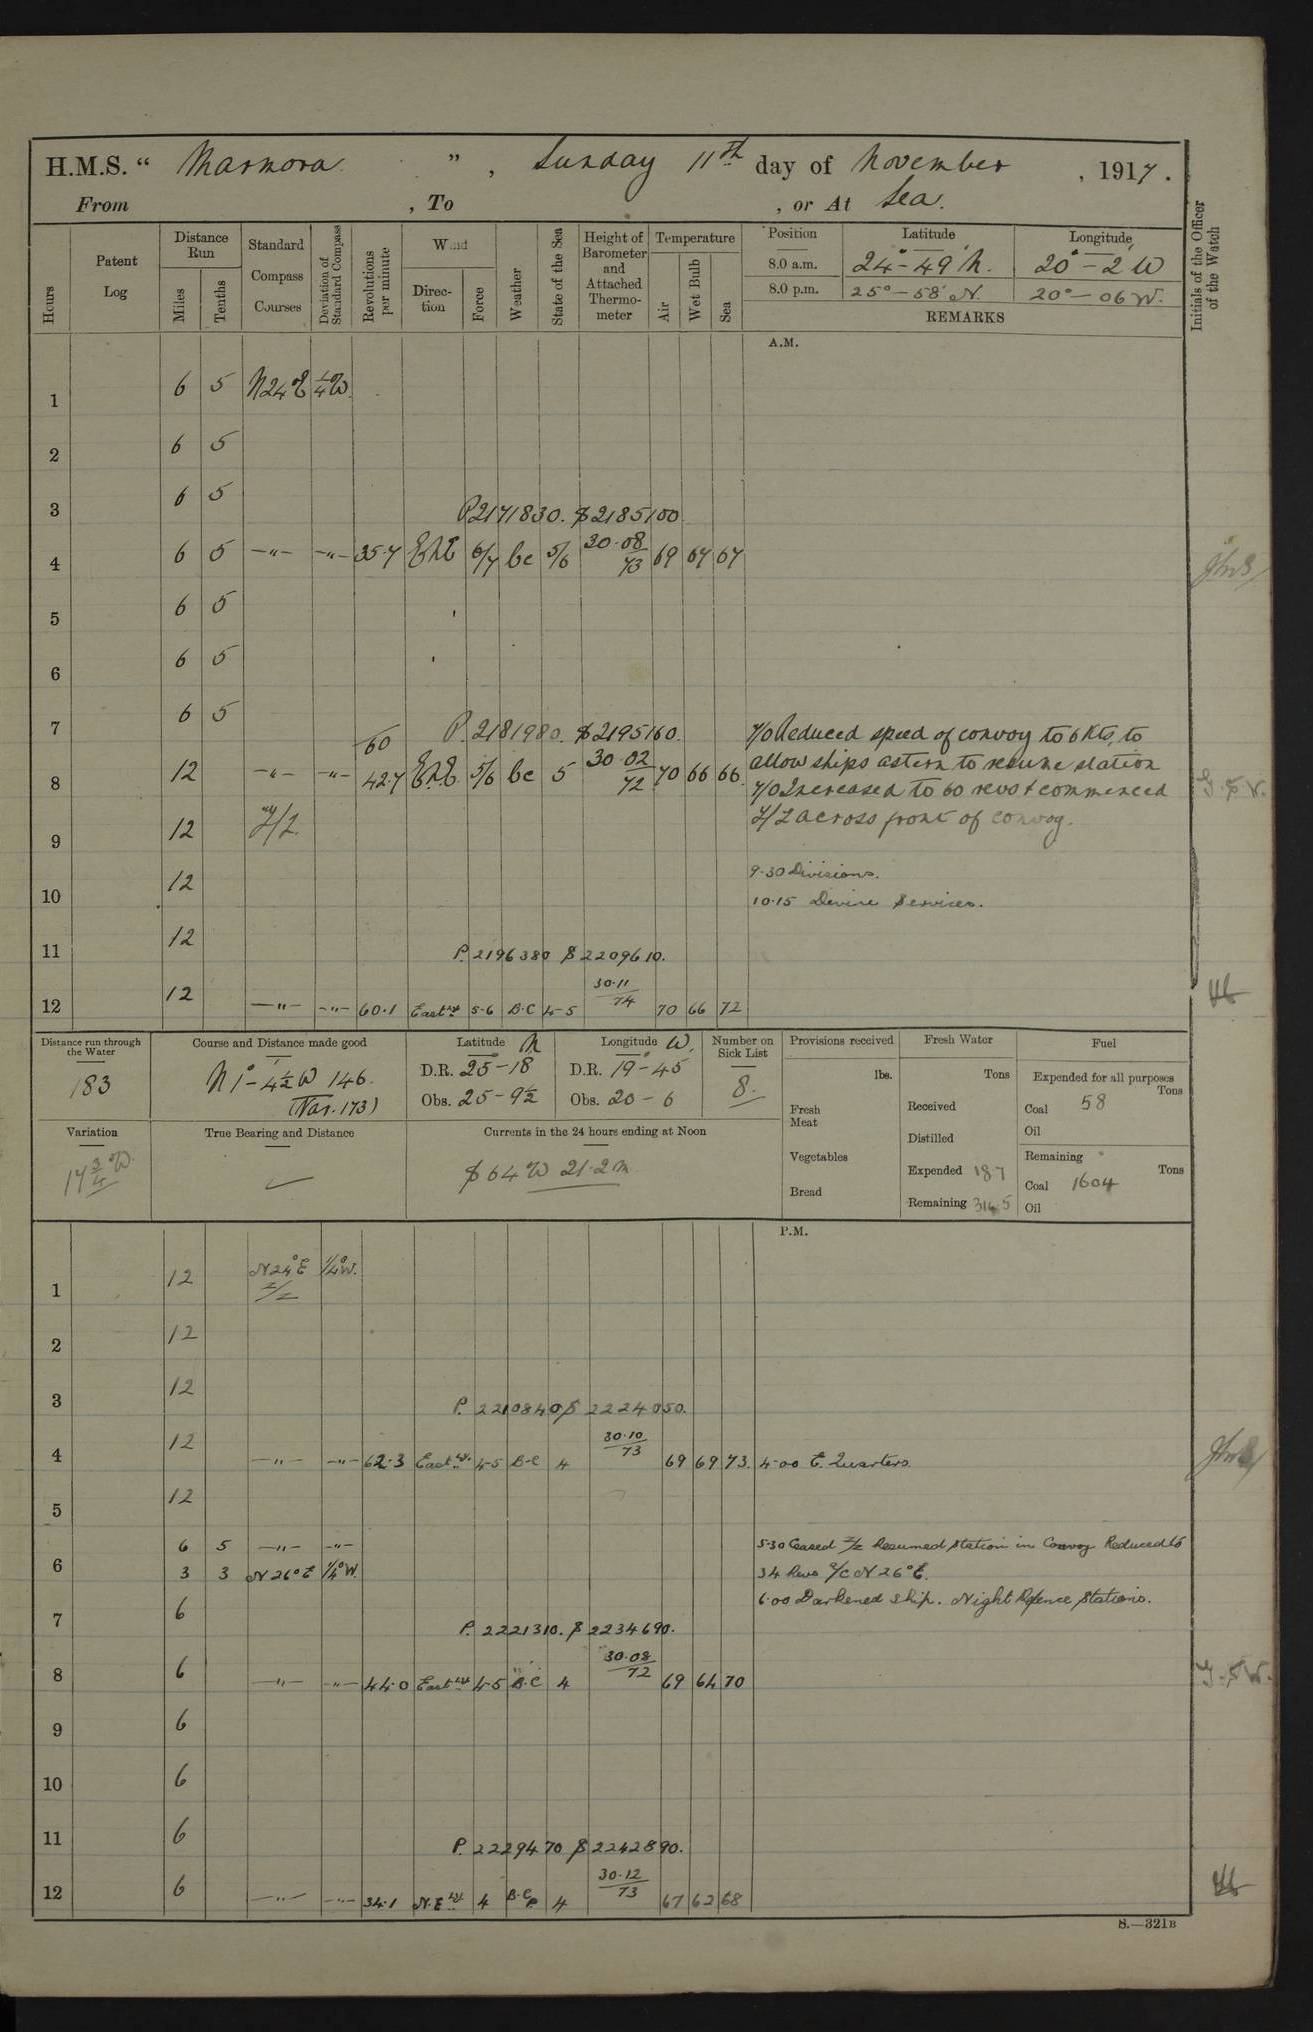 H.M.S. " Marmora " , Sunday 11th day of November , 1917 .
From , To , or At Sea.
Hours
Patent Log
Distance Run
Miles
Tenths
Standard Compass Courses
Deviation of Standard Compass
Revolutions per minute
Wind
Direction
Force
Weather
State of the Sea
Height of Barometer and Attached Thermometer
Temperature
Air
Wet Bulb
Sea
Position Latitude Longitude
8.0 a.m. 24°-49' N. 20°-2' W
8.0 p.m. 25°-58' N. 20°-06 W.
REMARKS
Initials of the Officer of the Watch
A.M.
1 6 5 N24°E ¼°W.
2 6 5
3 6 5
P2171830. S2185100
4 6 5 -"- -"- 35.7 ENE 6/7 bc 5/6 30.08/73 69 67 67
5 6 5
6 6 5
7 6 5
P. 2181980. S2195160.
7/0 Reduced speed of convoy to 6 Kts, to
60
8 12 -"- -"- 42.7 ENE 5/6 bc 5 30.02/72 70 66 66
allow ships astern to resume station
7/0 Increased to 60 revs & commenced
9 12 Z/Z
Z/Z across front of convoy.
G.F.W.
10 12
9.30 Divisions.
10.15 Devine Services.
11 12
P. 2196380 S 2209610.
12 12 -"- -"- 60.1 Eastwd 5-6 B.C 4-5 30.11/74 70 66 72
Distance run through the Water
183
Course and Distance made good
N 1°-4½' W 146.
(Var. 173)
Latitude N
D.R. 25-18
Obs. 25-9½
Longitude W.
D.R. 19°-45
Obs. 20-6
Number on Sick List
8.
Provisions received
lbs.
Fresh Meat
Vegetables
Bread
Fresh Water
Tons
Received
Distilled
Expended 187
Remaining 314.5
Fuel
Expended for all purposes
Tons
Coal 58
Oil
Remaining
Tons
Coal 1604
Oil
Variation
17¾°W.
True Bearing and Distance
Currents in the 24 hours ending at Noon
S 64 W 21.2 m
P.M.
1 12 N24°E ¼°W.
Z/Z
2 12
3 12
P. 2210840 S 2224050.
4 12 -"- -"- 62.3 Eastwd. 4-5 B-C 4 30.10/73 69 69 73. 4.00 E. Quarters.
5 12
6 5 -"- -"-
5.30 Ceased Z/Z Resumed station in Convoy Reduced to
6 3 3 N26°E ¼°W.
34 Revs a/c N 26°E.
6.00 Darkened ship. Night Defence Stations.
7 6
P. 2221310. S 2234690.
8 6 -"- -"- 44.0 Eastwd 4-5 B.C 4 30.08/72 69 64 70
G.F.W.
9 6
10 6
11 6
P. 2229470 S 2242890.
12 6 -"- -"- 34.1 N.Ewd 4 B.C.P. 4 30.12/73 67 62 68
S.—321B